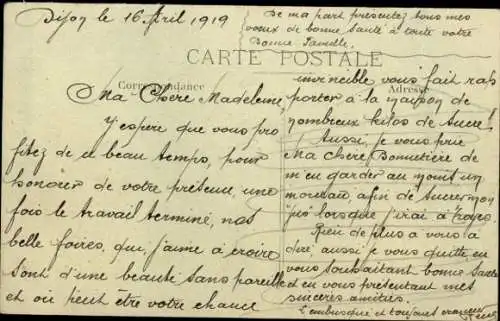 Dijon le 16 Avril 1919
De ma part présentez tous mes
voeux de bonne santé à toute votre
Bonne famille.
CARTE POSTALE
Correspondance
Adresse
Ma Chère Madeleine
J'espère que vous pro
fitez de ce beau temps, pour
honorer de votre présence, une
fois le travail terminé, nos
belle foires, que j'aime à croire
sont d'une beauté sans pareille
et où peut être votre chance
invincible vous fait rap
porter à la maison de
nombreux kilos de sucre!
Aussi, je vous prie
Ma chère Bonnetière de
m'en garder au moins un
morceau afin de sucer mon
lorsque j'irai à Troyes.
Rien de plus à vous
dire aussi je vous quitte en
vous souhaitant bonne Santé
et en vous présentant mes
sincères amitiés.
L'embusqué et toujours